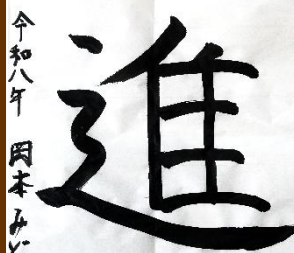 進
令和八年 岡本み